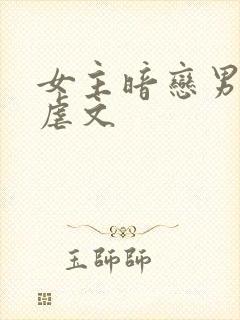 女主暗戀男
虐文
玉師師